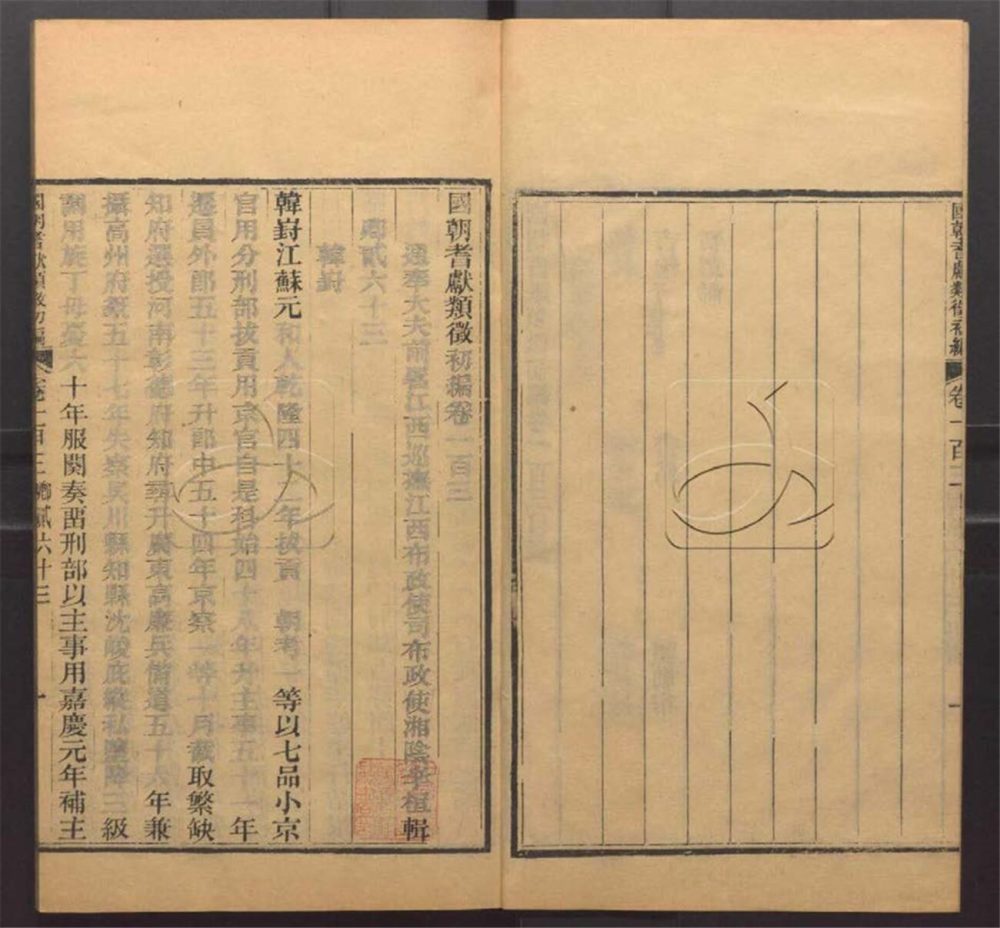 國朝耆獻類徵初編 卷一百二
國朝耆獻類徵初編卷一百三
通奉大夫前署江西巡撫江西布政使司布政使湘陰李桓輯
卿貳六十三
韓崶
韓崶江蘇元和人乾隆四十二年拔貢 朝考一等以七品小京
官用分刑部拔貢用京官自是科始四十八年升主事五十一年
遷員外郎五十三年升郎中五十四年京察一等十月截取繁缺
知府選授河南彰德府知府尋升廣東高廉兵備道五十六年兼
攝高州府篆五十七年失察吳川縣知縣沈峻庇縱私鹽降三級
調用旋丁母憂六十年服闋奏畱刑部以主事用嘉慶元年補主
國朝耆獻類徵初編 卷一百三 卿貳六十三 一